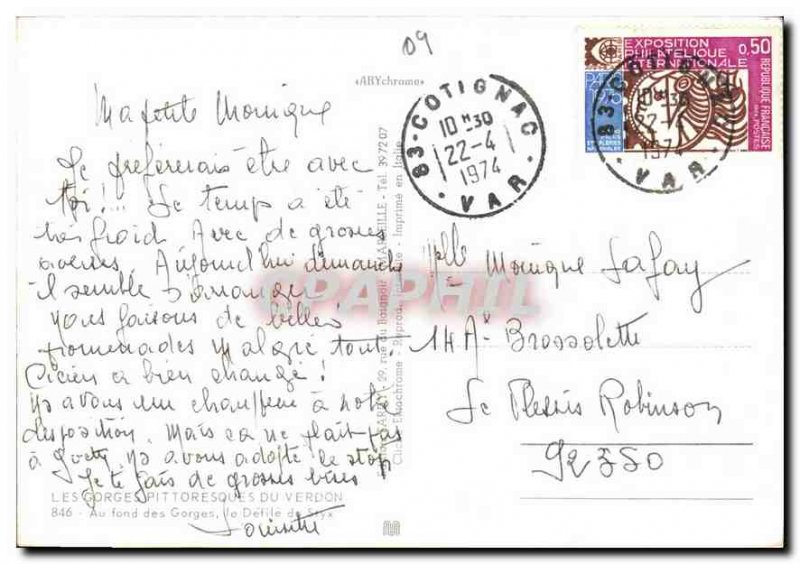 09
«ARYchrome»
EXPOSITION
PHILATELIQUE
INTERNATIONALE
0,50
REPUBLIQUE FRANÇAISE
POSTES
83 - COTIGNAC
10 H 30
22-4
1974
VAR
83 - COTIGNAC
10 H 30
22-4
1974
VAR
Ma petite Monique
Je préférerais être avec
toi!... Le temps a été
très froid Avec de grosses
averses. Aujourd'hui dimanche
il semble s'arranger
nous faisons de belles
promenades malgré tout.
a bien changé!
ns avons un chauffeur à notre
disposition. Mais ça ne plait pas
à ns avons adopté le stop
Je te fais de grosses bises
Mlle Monique Lafay
14 A Brossolette
Le Plessis Robinson
92350
29, rue du Baignoir MARSEILLE - Tél. 39 72 07
Imprimé en Italie
CPAPHIL
LES GORGES PITTORESQUES DU VERDON
846 - Au fond des Gorges, le Défilé de Styx